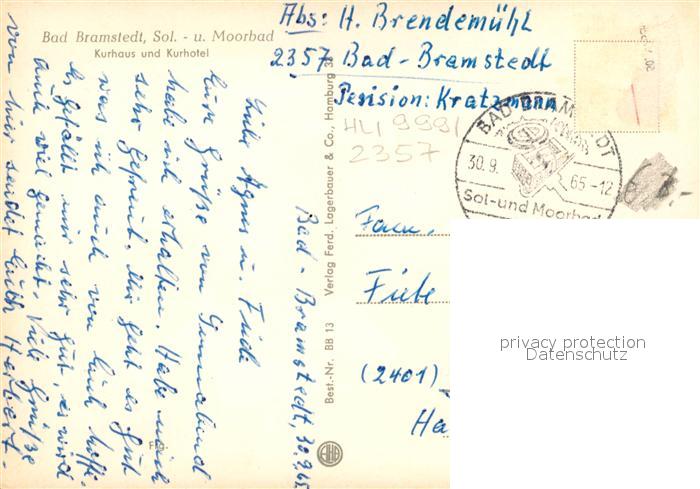 Bad Bramstedt, Sol. - u. Moorbad
Kurhaus und Kurhotel
Abs: H. Brendemühl
2357 Bad-Bramstedt
Pension: Kratzmann
HLI 9991
2357
BAD BRAMSTEDT
30.9. 65-12
Sol-und Moorbad
Bad-Bramstedt, 30.9.65
Liebe Agnes u. Fide
Eure Grüße von
habe ich erhalten. Habe mich
sehr gefreut. Mir geht es gut
was ich auch von Euch hoffe.
Es gefällt mir sehr gut, es wird
auch viel gemacht. Viele Grüße
von hier sendet Euch Herbert.
Best.-Nr. BB 13 Verlag Ferd. Lagerbauer & Co., Hamburg 36
Fam.
Fiete
(2401)
Ha
privacy protection
Datenschutz